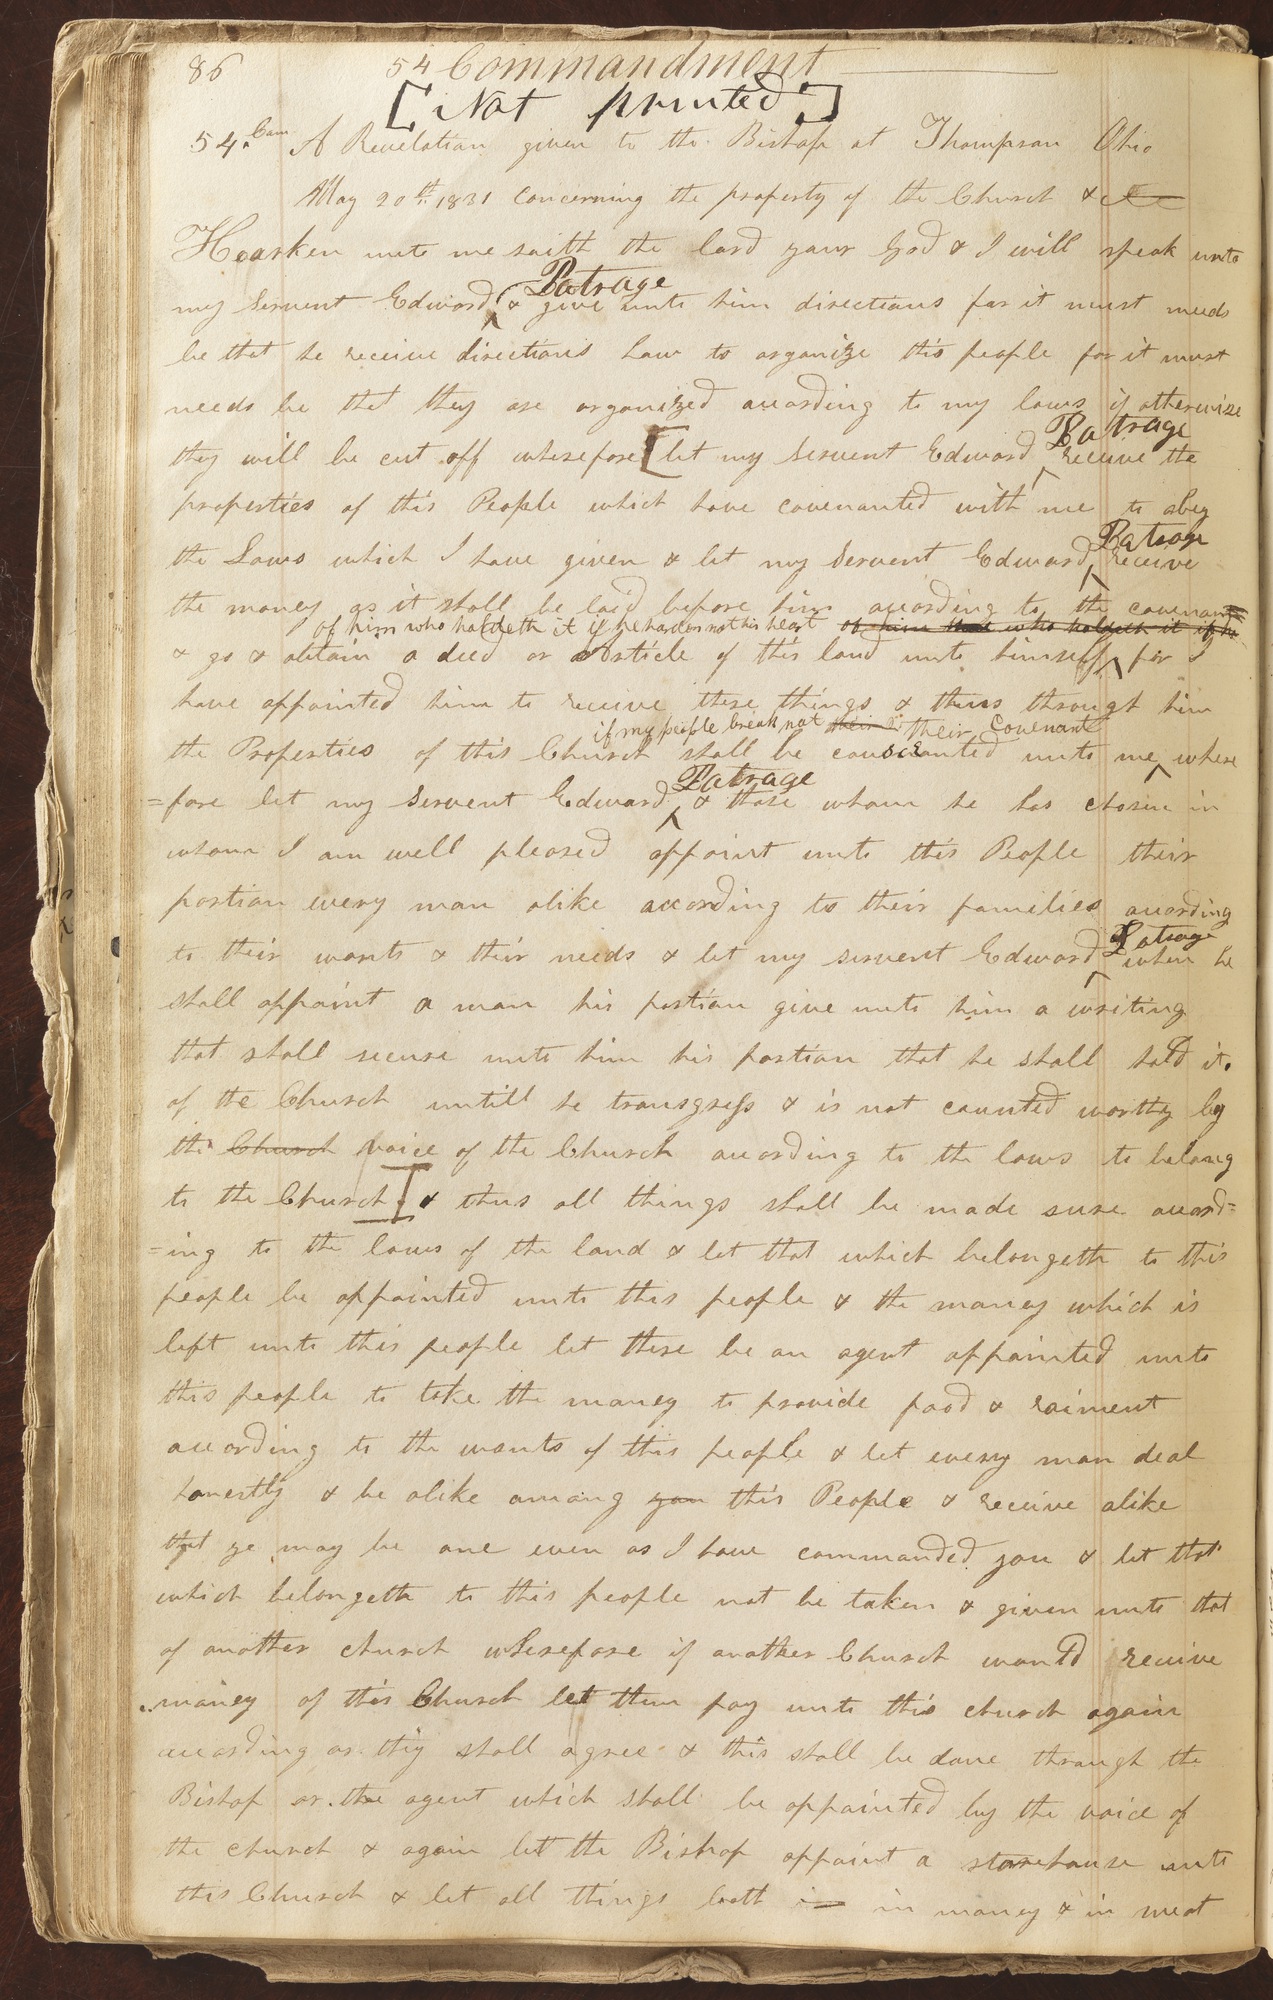 86
54 Commandment
[Not printed]
54. Com A Revelation given to the Bishop at Thompson Ohio
May 20th. 1831 concerning the property of the Church & &c
Hearken unto me saith the lord your God & I will speak unto
Patrage
my Servent Edward & give unto him directions for it must needs
be that he receive directions how to organize this people for it must
needs be that they are organized according to my laws if otherwize
Patrage
they will be cut off wherefore [let my Servent Edward receive the
properties of this People which have covenanted with me to obey
Patrage
the Laws which I have given & let my Servent Edward receive
the money as it shall be laid before him according to the covenant
of him who holdeth it if he harden not his heart of him that who holdeth it if he
& go & obtain a deed or Article of this land unto himself for I
have appointed him to receive these things & thus through him
if my people break not their their Covenant
the Properties of this Church shall be consecrated unto me where
Patrage
=fore let my Servent Edward & those whom he has chosen in
whom I am well pleased appoint unto this People their
portion every man alike according to their families according
Patrage
to their wants & their needs & let my servent Edward when he
shall appoint a man his portion give unto him a writing
that shall secure unto him his portion that he shall hold it.
of the Church untill he transgress & is not counted worthy by
the Church voice of the Church according to the laws to belong
to the Church] & thus all things shall be made sure accord=
=ing to the laws of the land & let that which belongeth to this
people be appointed unto this people & the money which is
left unto this people let there be an agent appointed unto
this people to take the money to provide food & raiment
according to the wants of this people & let every man deal
honestly & be alike among you this People & receive alike
that ye may be one even as I have commanded you & let that
which belongeth to this people not be taken & given unto that
of another church wherefore if another Church would receive
money of this Church let them pay unto this church again
according as they shall agree & this shall be done through the
Bishop or the agent which shall be appointed by the voice of
the church & again let the Bishop appoint a storehouse unto
this Church & let all things both i in money & in meat